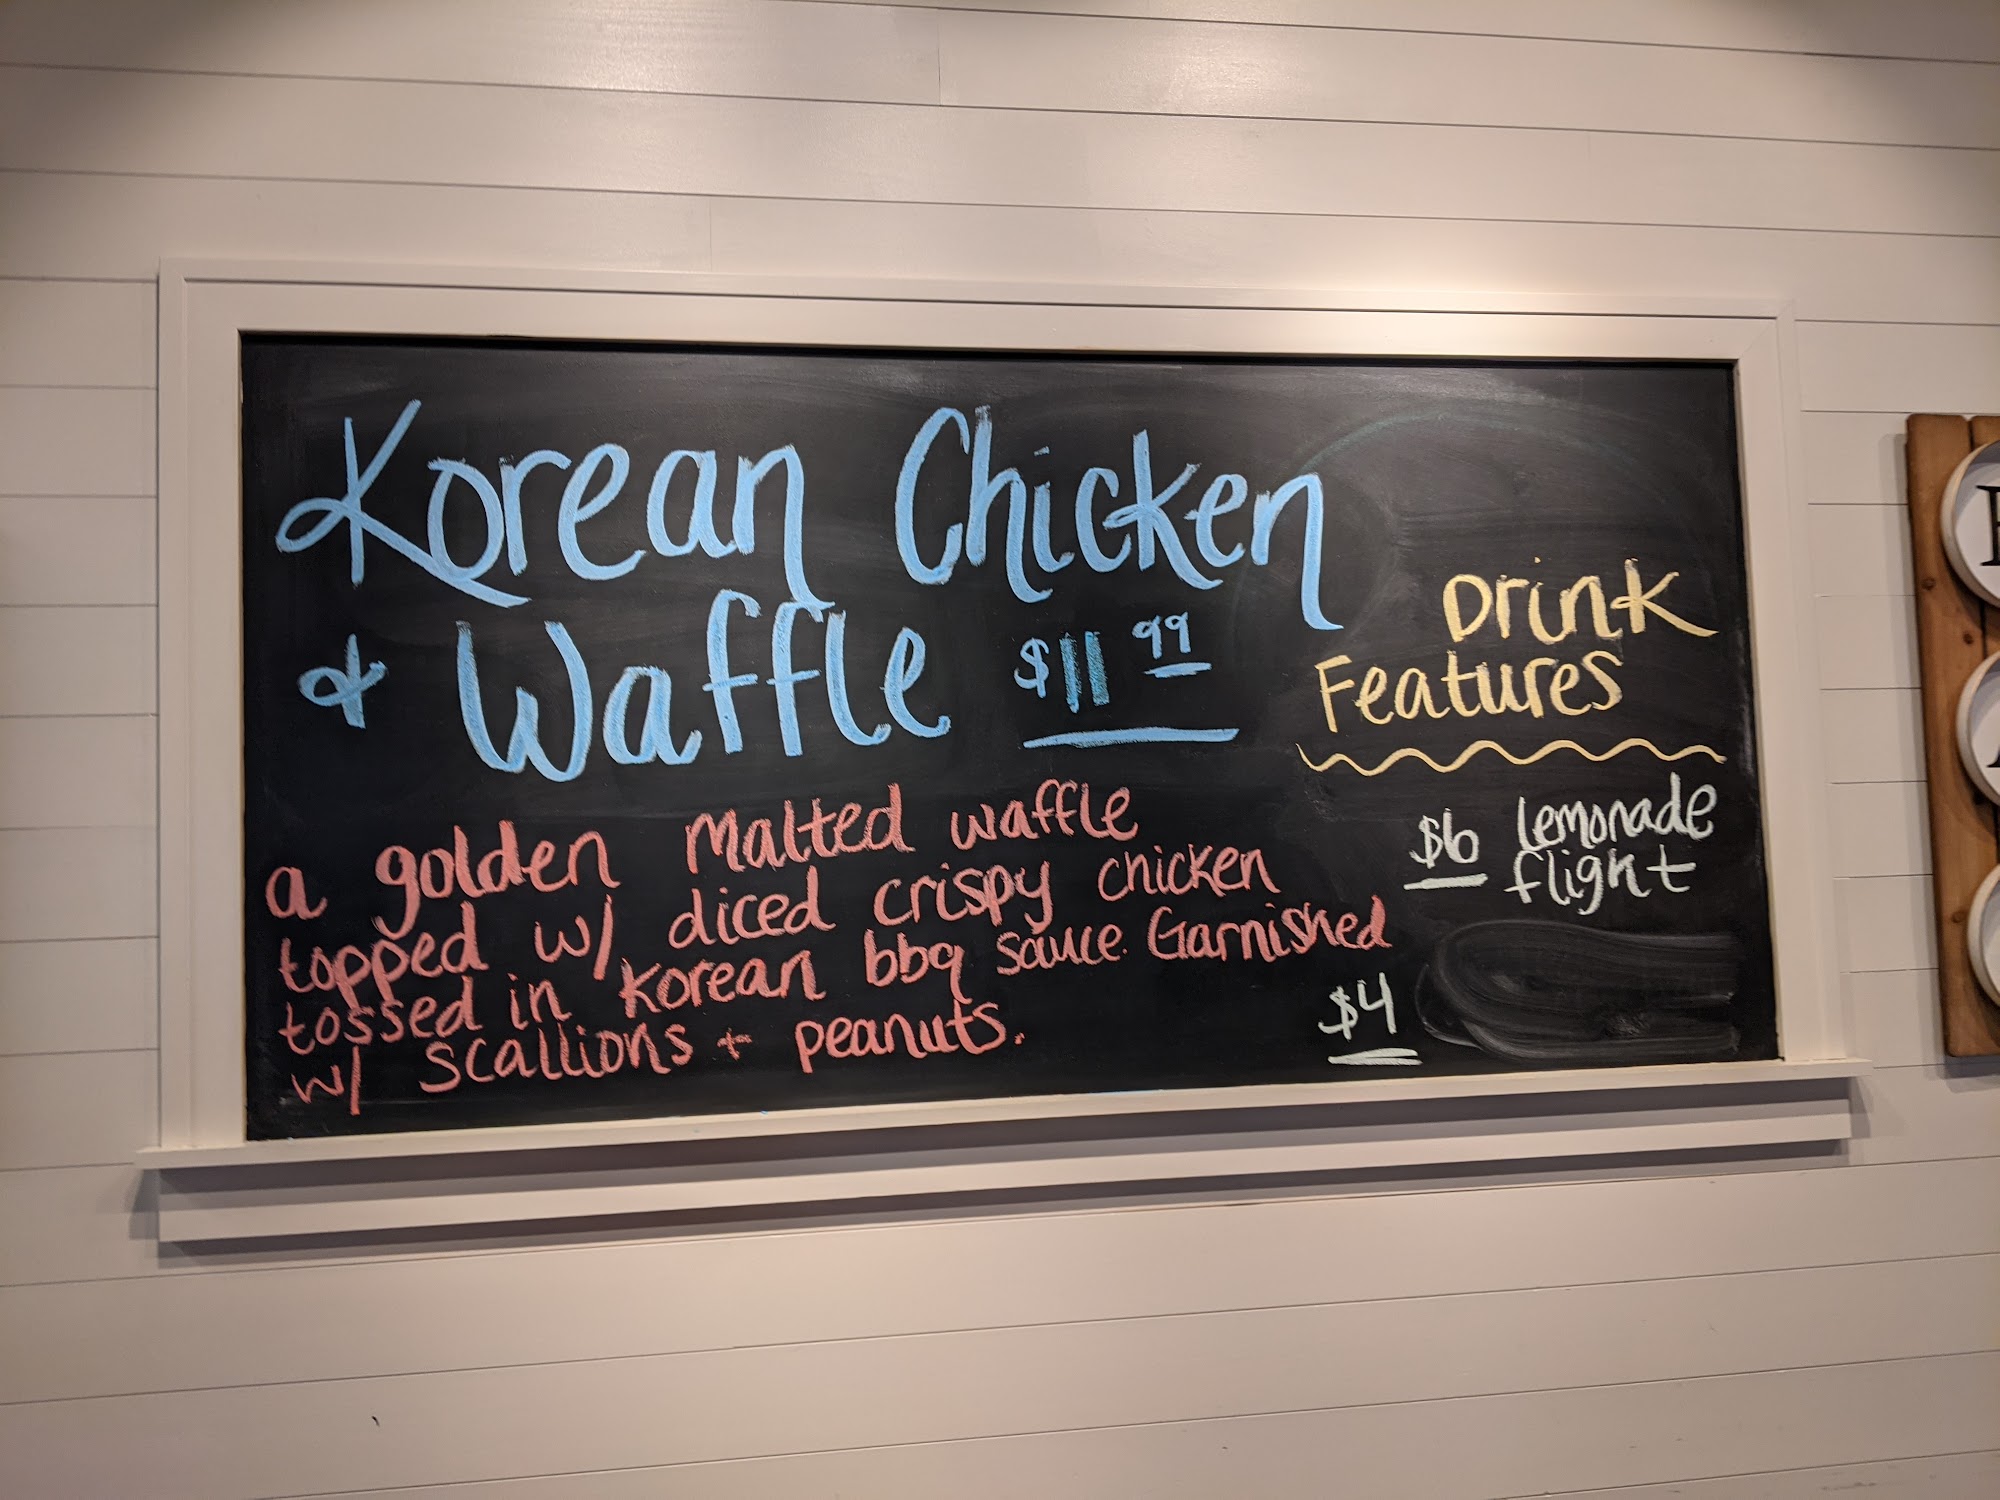 Korean Chicken
& Waffle $11 99
a golden Malted waffle
topped w/ diced crispy chicken
tossed in Korean bbq sauce. Garnished
w/ scallions + peanuts.
Drink
Features
$6 lemonade
flight
$4